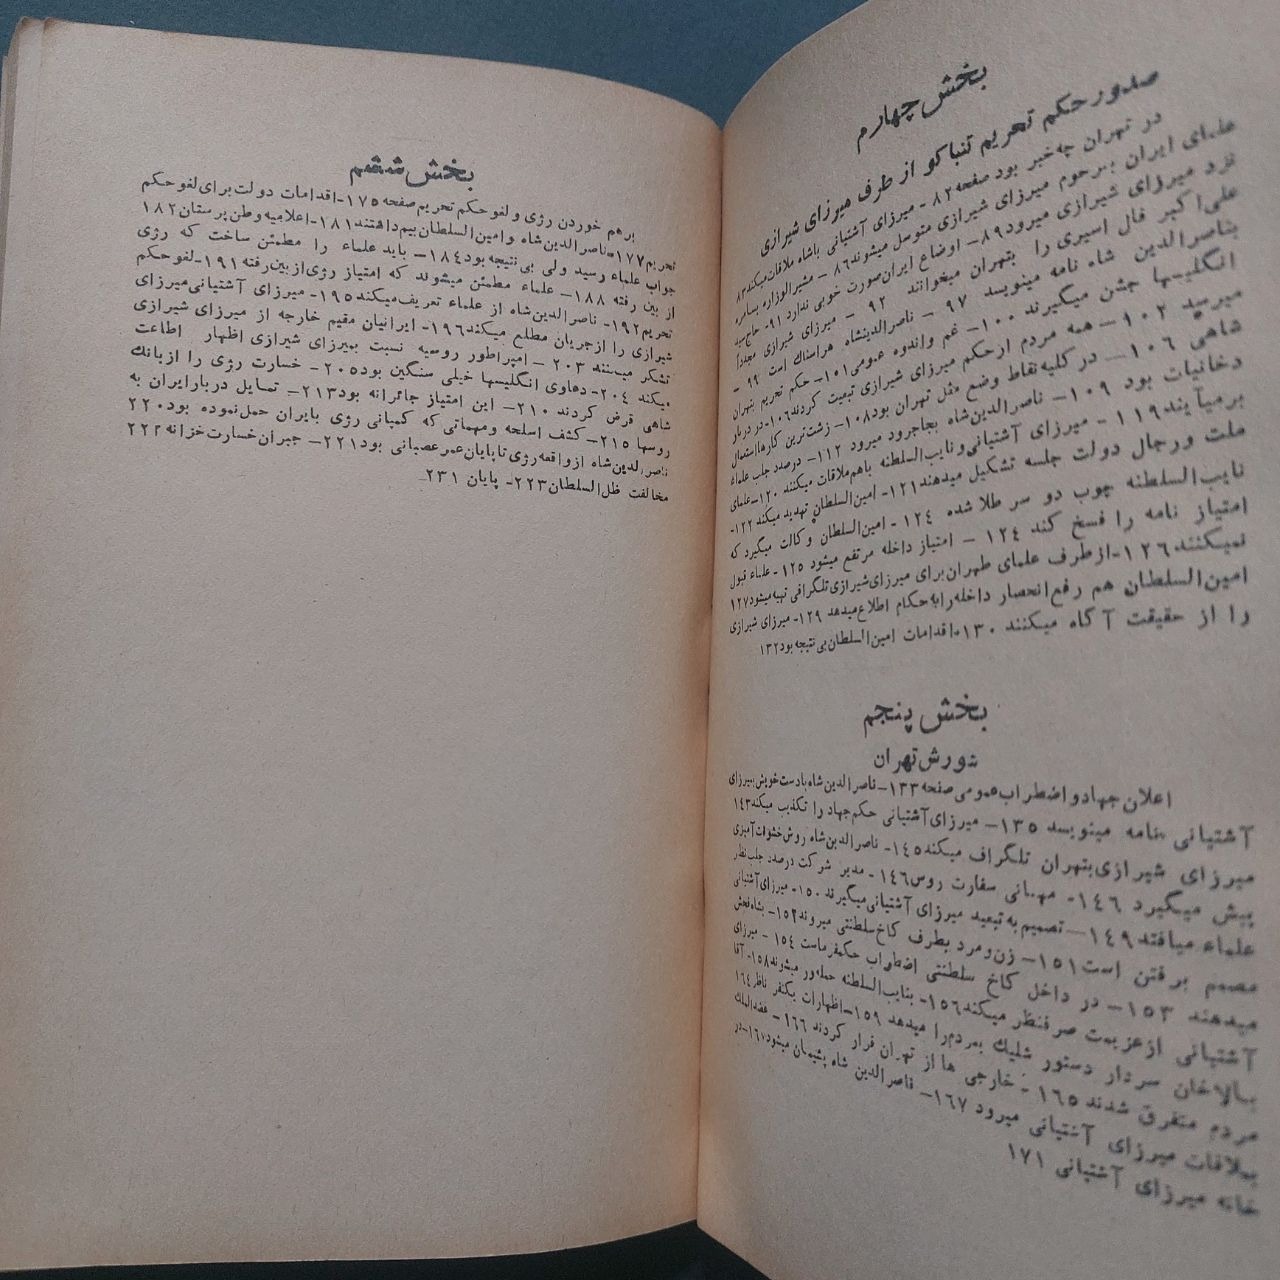 بخش چهارم
صدور حکم تحریم تنباکو از طرف میرزای شیرازی
در تهران چه خبر بود صفحه ۸۲ – میرزای آشتیانی باشاه ملاقات میکند ۸۳
علمای ایران بمرحوم میرزای شیرازی متوسل میشوند ۸۶ – مشیرالوزاره بسامره
نزد میرزای شیرازی میرود ۸۹- اوضاع ایران صورت خوبی ندارد ۹۱- حاج سید
علی اکبر فال اسیری را بتهران میخوانند ۹۲ – میرزای شیرازی مجدداً
بناصرالدین شاه نامه مینویسد ۹۷ – ناصرالدینشاه هراسناك است ۹۹ –
انگلیسها جشن میگیرند ۱۰۰- غم واندوه عمومی ۱۰۱- حکم تحریم بتهران
میرسد ۱۰۲ – همه مردم ازحکم میرزای شیرازی تبعیت کردند ۱۰۶- در دربار
شاهی ۱۰۶ – در کلیه نقاط وضع مثل تهران بود ۱۰۸- زشت ترین کارها استعمال
دخانیات بود ۱۰۹ – ناصرالدین شاه بجاجرود میرود ۱۱۲ – درصدد جلب علماء
برمیآیند ۱۱۹ – میرزای آشتیانی و نایب السلطنه باهم ملاقات میکنند ۱۲۰- علمای
ملت ورجال دولت جلسه تشکیل میدهند ۱۲۱- امین السلطان تهدید میکند ۱۲۲-
نایب السلطنه چوب دو سر طلا شده ۱۲۴ – امین السلطان وکالت میگیرد که
امتیاز نامه را فسخ کند ۱۲۴ – امتیاز داخله مرتفع میشود ۱۲۵ – علماء قبول
نمیکنند ۱۲۶- از طرف علمای طهران برای میرزای شیرازی تلگرافی تهیه میشود ۱۲۷
امین السلطان هم رفع انحصار داخله را به حکام اطلاع میدهد ۱۲۹ – میرزای شیرازی
را از حقیقت آگاه میکنند ۱۳۰- اقدامات امین السلطان بی نتیجه بود ۱۳۲
بخش پنجم
شورش تهران
اعلان جهاد و اضطراب عمومی صفحه ۱۳۳– ناصرالدین شاه بادست خویش بمیرزای
آشتیانی نامه مینویسد ۱۳۵ – میرزای آشتیانی حکم جهاد را تکذیب میکند ۱۴۳
میرزای شیرازی بتهران تلگراف میکند ۱۴۵- ناصرالدین شاه روش خشونت آمیزی
پیش میگیرد ۱۴۶- مهمانی سفارت روس ۱۴۶ – مدیر شرکت درصدد جلب نظر
علماء میافتد ۱۴۹ – تصمیم به تبعید میرزای آشتیانی میگیرند ۱۵۰- میرزای آشتیانی
مصمم برفتن است ۱۵۱ – زن و مرد بطرف کاخ سلطنتی میروند ۱۵۲- بشاه فحش
میدهند ۱۵۳ – در داخل کاخ سلطنتی اضطراب حکمفرماست ۱۵۴ – میرزای
آشتیانی از عزیمت صرفنظر میکند ۱۵۶- بنایب السلطنه حمله ور میشوند ۱۵۸- آقا
بالاخان سردار دستور شلیك بمردم را میدهد ۱۵۹- اظهارات یکنفر ناظر ۱۶۴
مردم متفرق شدند ۱۶۵ – خارجی ها از تهران فرار کردند ۱۶۶ – عضدالملك
بملاقات میرزای آشتیانی میرود ۱۶۷ – ناصرالدین شاه پشیمان میشود ۱۶۷- در
خانه میرزای آشتیانی ۱۷۱
بخش ششم
برهم خوردن رژی و لغو حکم تحریم صفحه ۱۷۵- اقدامات دولت برای لغو حکم
تحریم ۱۷۷- ناصرالدین شاه و امین السلطان بیم داشتند ۱۸۱- اعلامیه وطن پرستان ۱۸۲
جواب علماء رسید ولی بی نتیجه بود ۱۸۴ – باید علماء را مطمئن ساخت که رژی
از بین رفته ۱۸۸ – علماء مطمئن میشوند که امتیاز رژی از بین رفته ۱۹۱- لغو حکم
تحریم ۱۹۲- ناصرالدین شاه از علماء تعریف میکند ۱۹۵- میرزای آشتیانی میرزای
شیرازی را از جریان مطلع میکند ۱۹۶- ایرانیان مقیم خارجه از میرزای شیرازی
تشکر میکنند ۲۰۳ – امپراطور روسیه نسبت بمیرزای شیرازی اظهار اطاعت
میکند ۲۰۴- دعاوی انگلیسها خیلی سنگین بود ۲۰۵- خسارت رژی را از بانك
شاهی قرض کردند ۲۱۰ – این امتیاز جائرانه بود ۲۱۳- تمایل دربار ایران به
روسها ۲۱۵ – کشف اسلحه ومهماتی که کمپانی رژی بایران حمل نموده بود ۲۲۰
ناصرالدین شاه از واقعه رژی تا پایان عمر عصبانی بود ۲۲۱- جبران خسارت خزانه ۲۲۲
مخالفت ظل السلطان ۲۲۳- پایان ۲۳۱